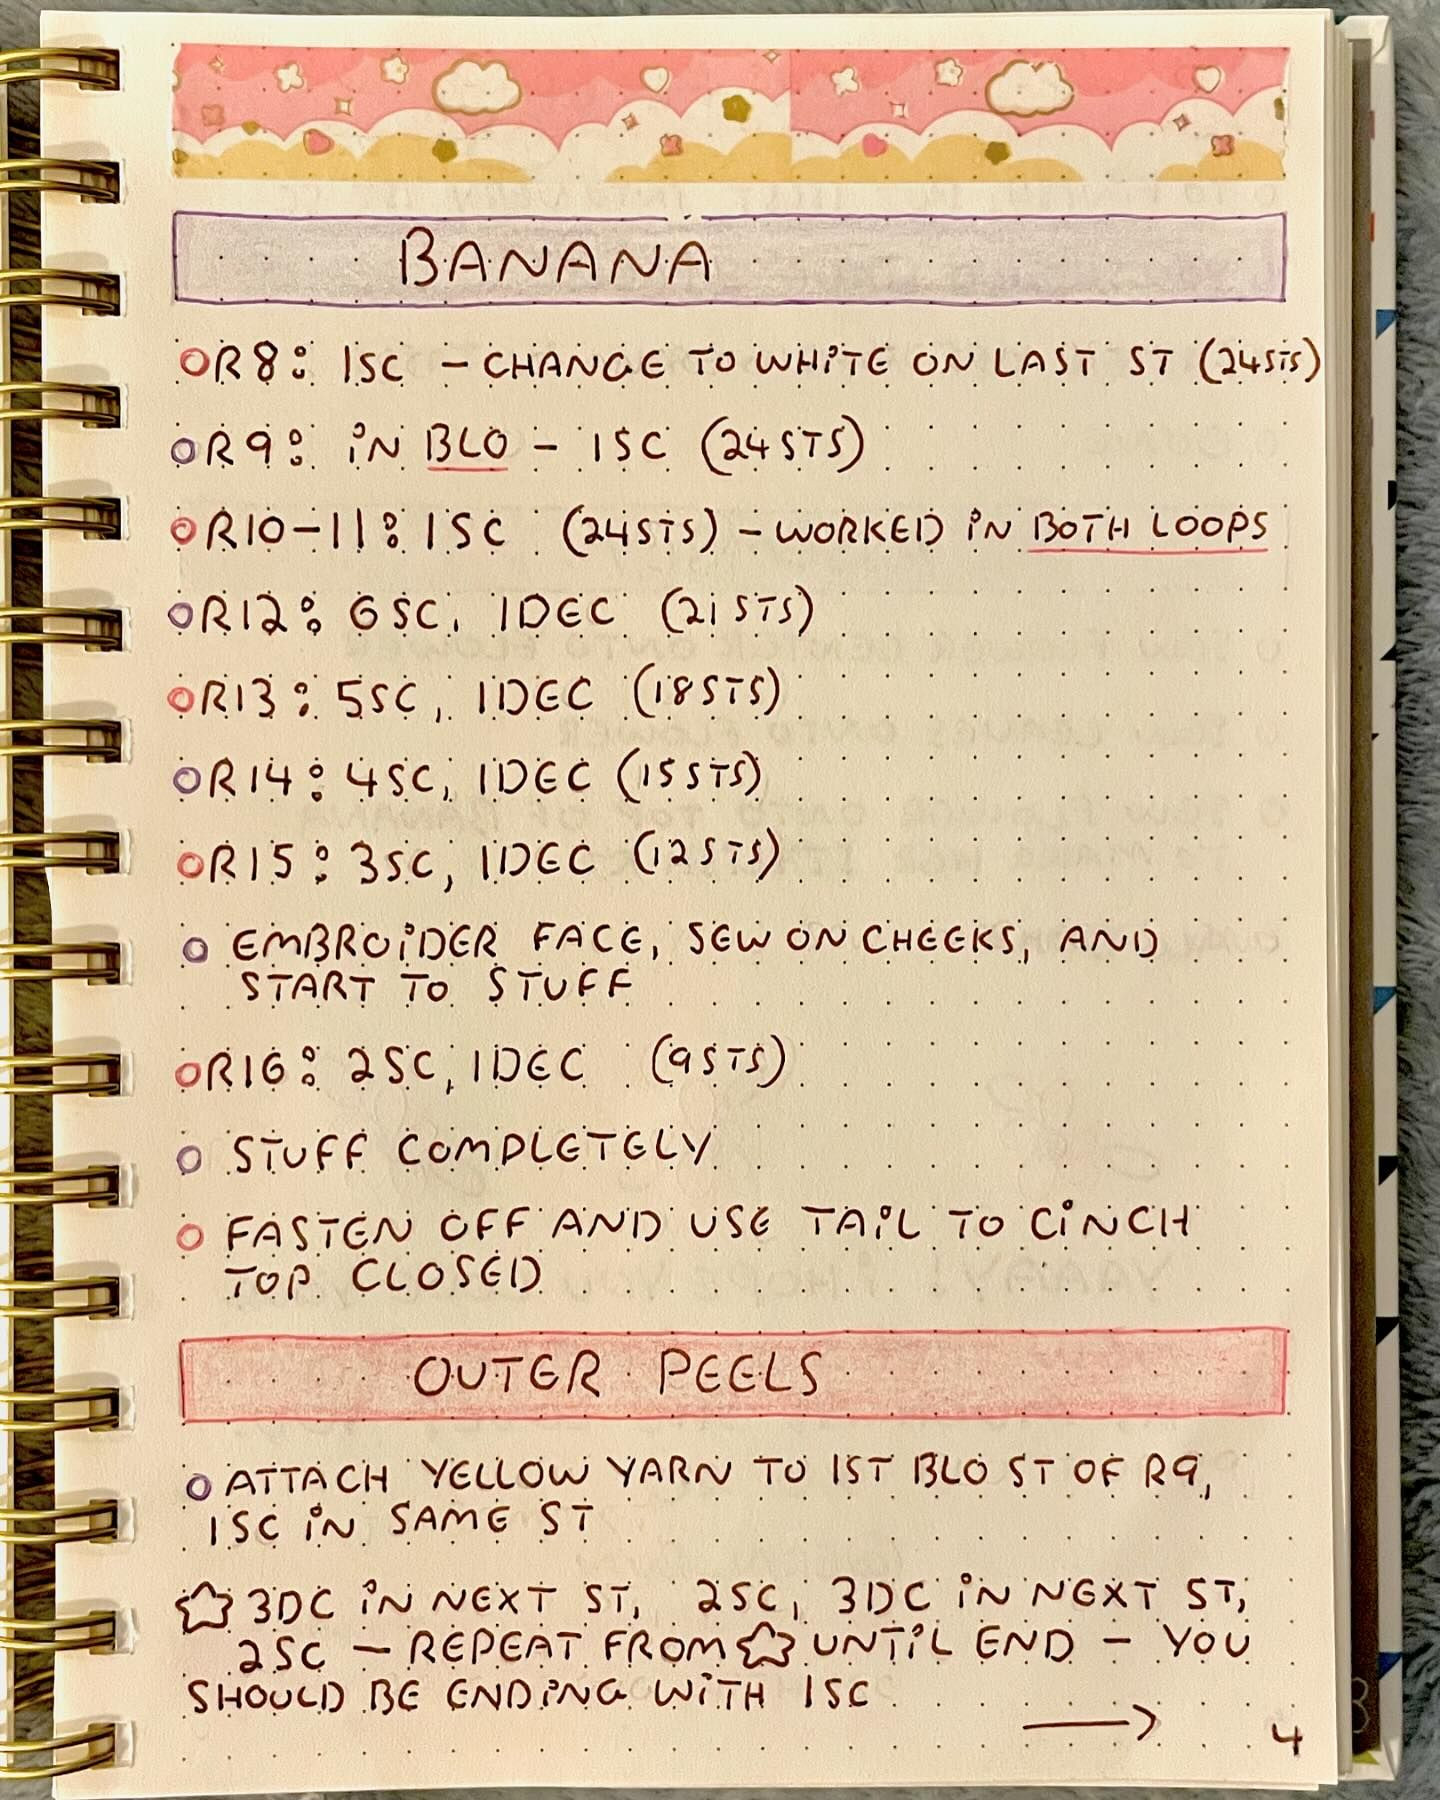 BANANA
R8: 1SC - CHANGE TO WHITE ON LAST ST (24STS)
R9: IN BLO - 1SC (24STS)
R10-11: 1SC (24STS) - WORKED IN BOTH LOOPS
R12: 6SC, 1DEC (21STS)
R13: 5SC, 1DEC (18STS)
R14: 4SC, 1DEC (15STS)
R15: 3SC, 1DEC (12STS)
EMBROIDER FACE, SEW ON CHEEKS, AND
START TO STUFF
R16: 2SC, 1DEC (9STS)
STUFF COMPLETELY
FASTEN OFF AND USE TAIL TO CINCH
TOP CLOSED
OUTER PEELS
ATTACH YELLOW YARN TO 1ST BLO ST OF R9,
1SC IN SAME ST
☆ 3DC IN NEXT ST, 2SC, 3DC IN NEXT ST,
2SC - REPEAT FROM ☆ UNTIL END - YOU
SHOULD BE ENDING WITH 1SC
→ 4